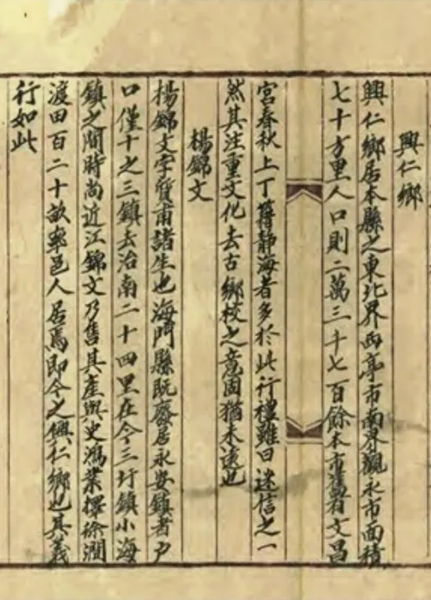 興仁鄉
興仁鄉居本縣之東北界西亭市南界觀永市面積
七十方里人口則二萬三千七百餘本市舊有文昌
宮春秋上丁蒞靜海者多於此行禮雖曰迷信之一
然其注重文化去古鄉校之意固猶未遠也
楊錦文
楊錦文字質甫諸生也海門縣既廢居永安鎮者户
口僅十之三鎮去治南二十四里在今三圩鎮小海
鎮之間時尚近江錦文乃售其產與史鴻業擇徐澗
渡田百二十畝率邑人居焉即今之興仁鄉也其義
行如此